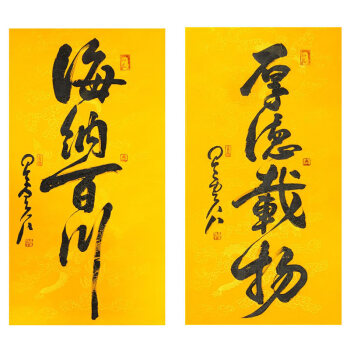 海纳百川
厚德載物